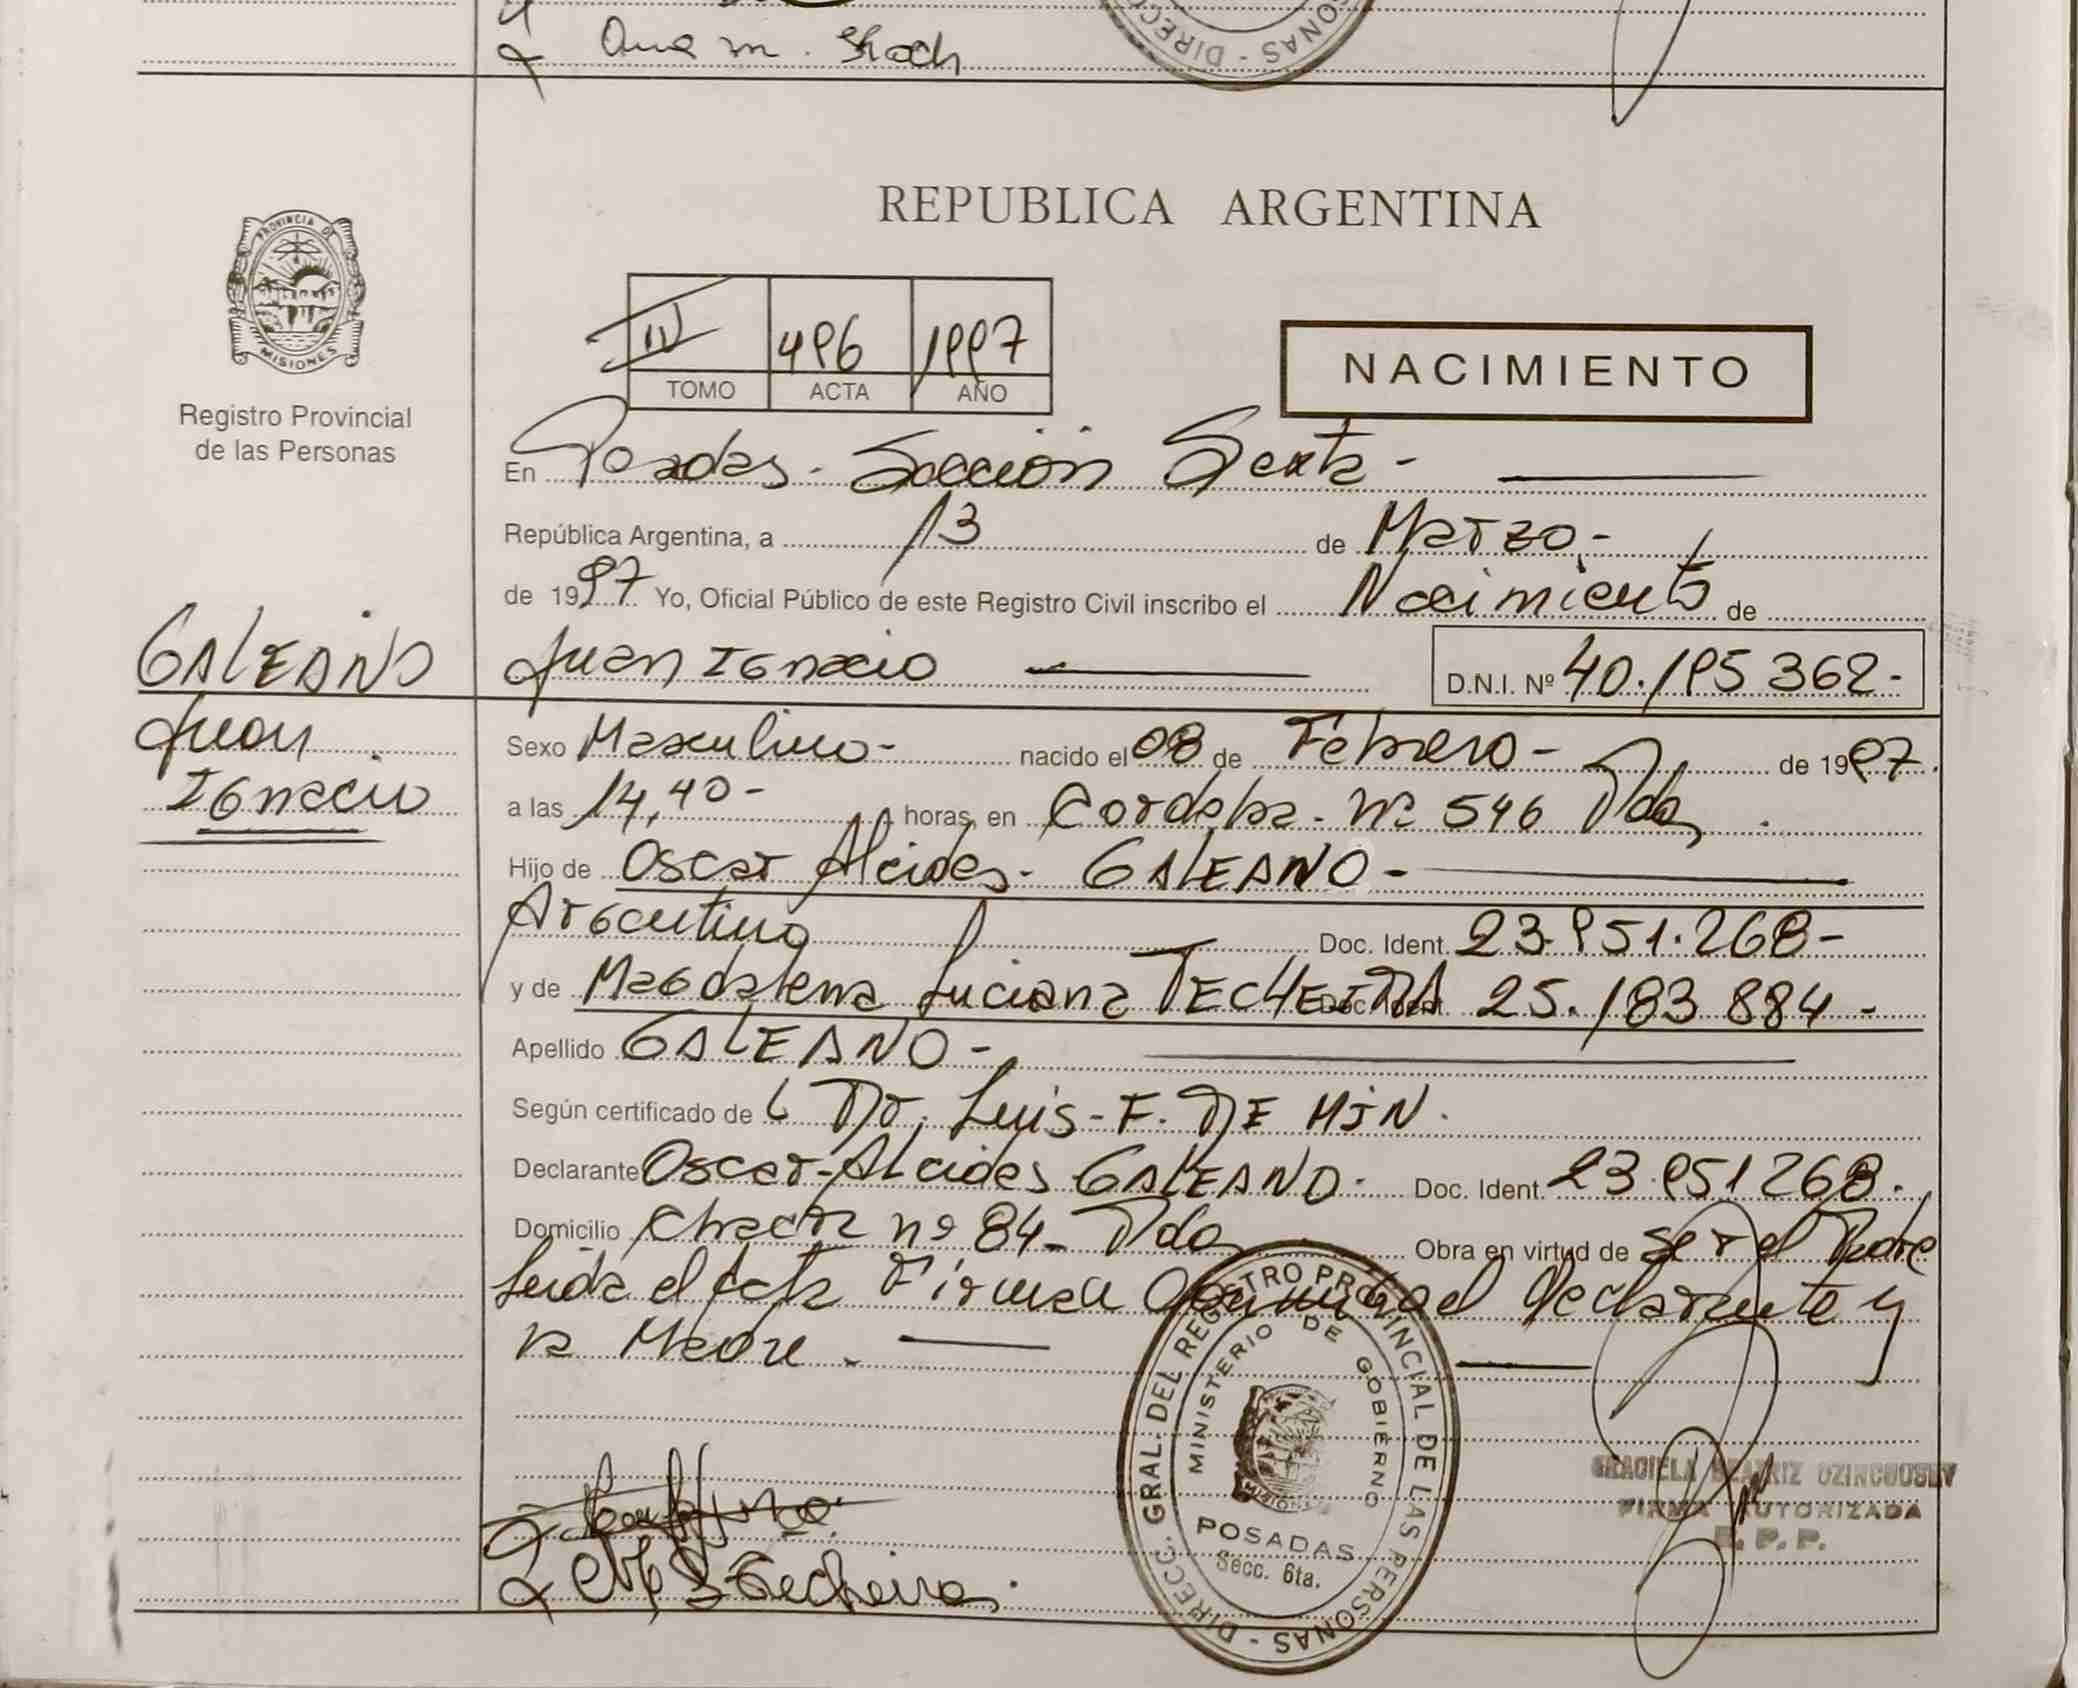 Ana M.
DIRECC
SONAS - DIREC
REPUBLICA ARGENTINA
PROVINCIA DE
MISIONES
Registro Provincial
de las Personas
IV 496 1997
TOMO ACTA AÑO
NACIMIENTO
En Posadas - Sección Sexta -
República Argentina, a 13 de Marzo -
de 1997 Yo, Oficial Público de este Registro Civil inscribo el Nacimiento de
GALEANO
Juan Ignacio
Juan Ignacio D.N.I. Nº 40.195 362 -
Sexo Masculino - nacido el 08 de Febrero - de 1997.
a las 14,40 - horas, en Cordoba - Nº 546 Pdas.
Hijo de Oscar Alcides - GALEANO -
Argentino Doc. Ident. 23.951.268 -
y de Magdalena Luciana TECHEIRA Doc. Ident. 25.183 884 -
Apellido GALEANO -
Según certificado de Dr. Luis - F. DE MIN.
Declarante Oscar - Alcides GALEANO. Doc. Ident. 23.951 268.
Domicilio Chacra nº 84 - Pdas Obra en virtud de ser el Padre
Leida el Acta Firman el declarante y
la Madre.
DIRECC. GRAL. DEL REGISTRO PROVINCIAL DE LAS PERSONAS
MINISTERIO DE GOBIERNO
MISIONES
POSADAS
Secc. 6ta.
GRACIELA BEATRIZ
FIRMA AUTORIZADA
R. P. P.
Techeira.